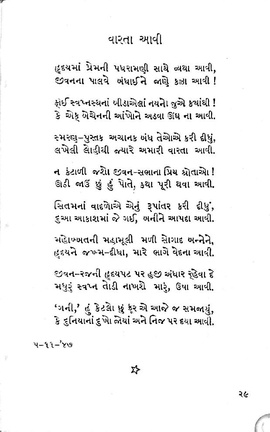 વારતા આવી
હૃદયમાં પ્રેમની પધરામણી સાથે વ્યથા આવી,
જીવનના પાલવે બંધાઈને જાણે કઝા આવી !
કાંઈ સ્વપ્નસ્થનાં બીડાએલાં નયનો જુએ ક્યાંથી !
કે એક બેચેનની આંખોને અડવા ઊંઘ ના આવી.
સ્મરણ-પુસ્તક અચાનક બંધ તેઓએ કરી દીધું,
લખેલી લોહીથી જ્યારે અમારી વારતા આવી.
ન કંટાળી જશો જીવન-સભાના પ્રિય શ્રોતાઓ !
ઊઠી જાઉં છું હું પોતે, કથા પૂરી થવા આવી.
સિતમનાં વાદળોએ એનું રૂપાંતર કરી દીધું,
દુઆ આકાશમાં જે ગઈ, બનીને આપદા આવી.
મહોબ્બતની મહામૂલી મળી સોગાદ બન્નેને,
હૃદયને જખ્મ-દીધા, મારે ભાગે વેદના આવી.
જીવન-રજની હૃદયપટ પર હજી અંધાર રહેવા દે
મધુરું સ્વપ્ન તોડી નાખશે મારું, ઉષા આવી.
‘ગની,’ હું કેટલો છું ક્રૂર એ આજે જ સમજાયું,
કે દુનિયાનાં દુખો જોયાં અને નિજ પર દયા આવી.
૫-૧૧-'૪૭
૨૯